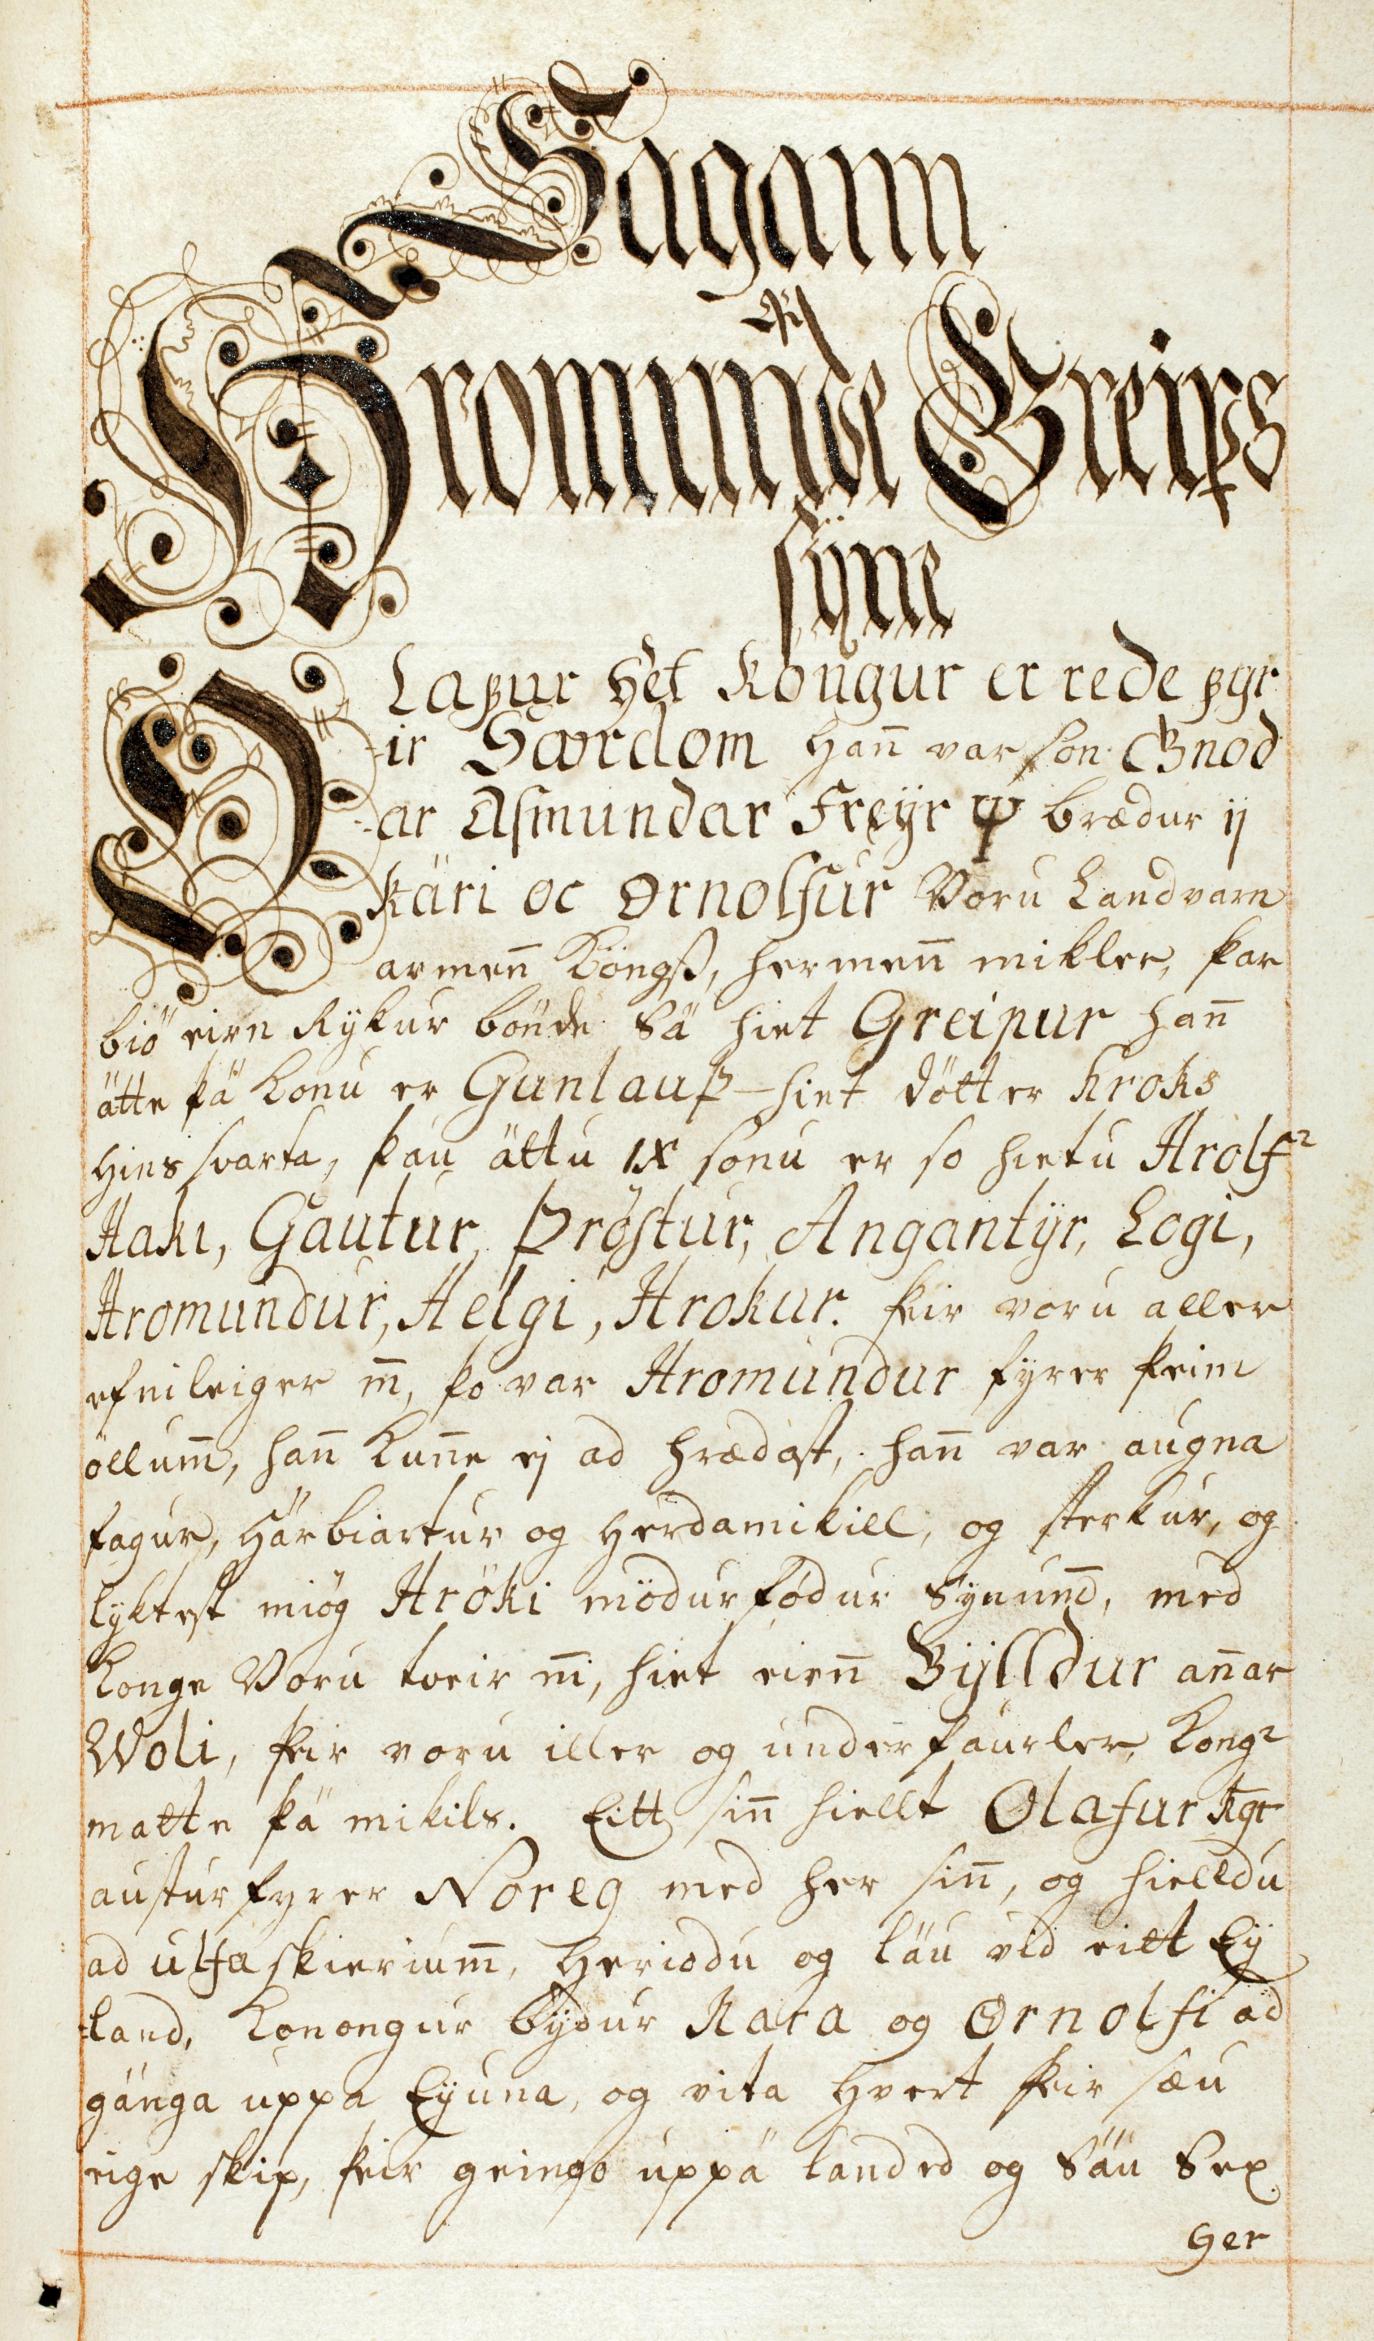 Sagann
af
Hromunde Greips
syne
OLafur Het Kongur er rede fyr
-ir Gördom Hañ var son Gnod
-ar Asmundar Freÿr ᛘ brædur ij
Käri oc Ornolfur Voru Landvarn
armeñ Köngß, hermeñ mikler, þar
biö eirn Rÿkur bönde Sä hiet Greipur hañ
ätte þä konu er Gunlauf hiet dötter Kroks
Hins svarta, þau ättu IX sonu er so hietu Hrolfr
Haki, Gautur, Þröstur, Angantÿr, Logi,
Hromundur, Helgi, Hrokur. þeir voru aller
efnileiger m̄, þo var Hromundur fyrer þeim
öllum̄, hañ kuñe ej ad hrædast, hañ var augna
fagur, Härbiartur og Herdamikill, og sterkur, og
lyktest miög Hröki mödurfödur Synum̄, med
Konge Voru tveir m̄, hiet eirn Bÿlldur añar
Woli, þeir voru iller og underfaurler, Kongr
matte þä mikils. Eitt siñ hiellt Olafur Kgr
austur fyrer Noreg med her siñ, og hielldu
ad ulfaskierium̄, Heriodu og läu vid eitt Eÿ
-land, Konongur bÿdur Kara og Ornolfi ad
gänga uppa Eÿuna, og vita Hvort þeir sæu
eige skip, þeir geingo uppä landed og Säu Sex
ger